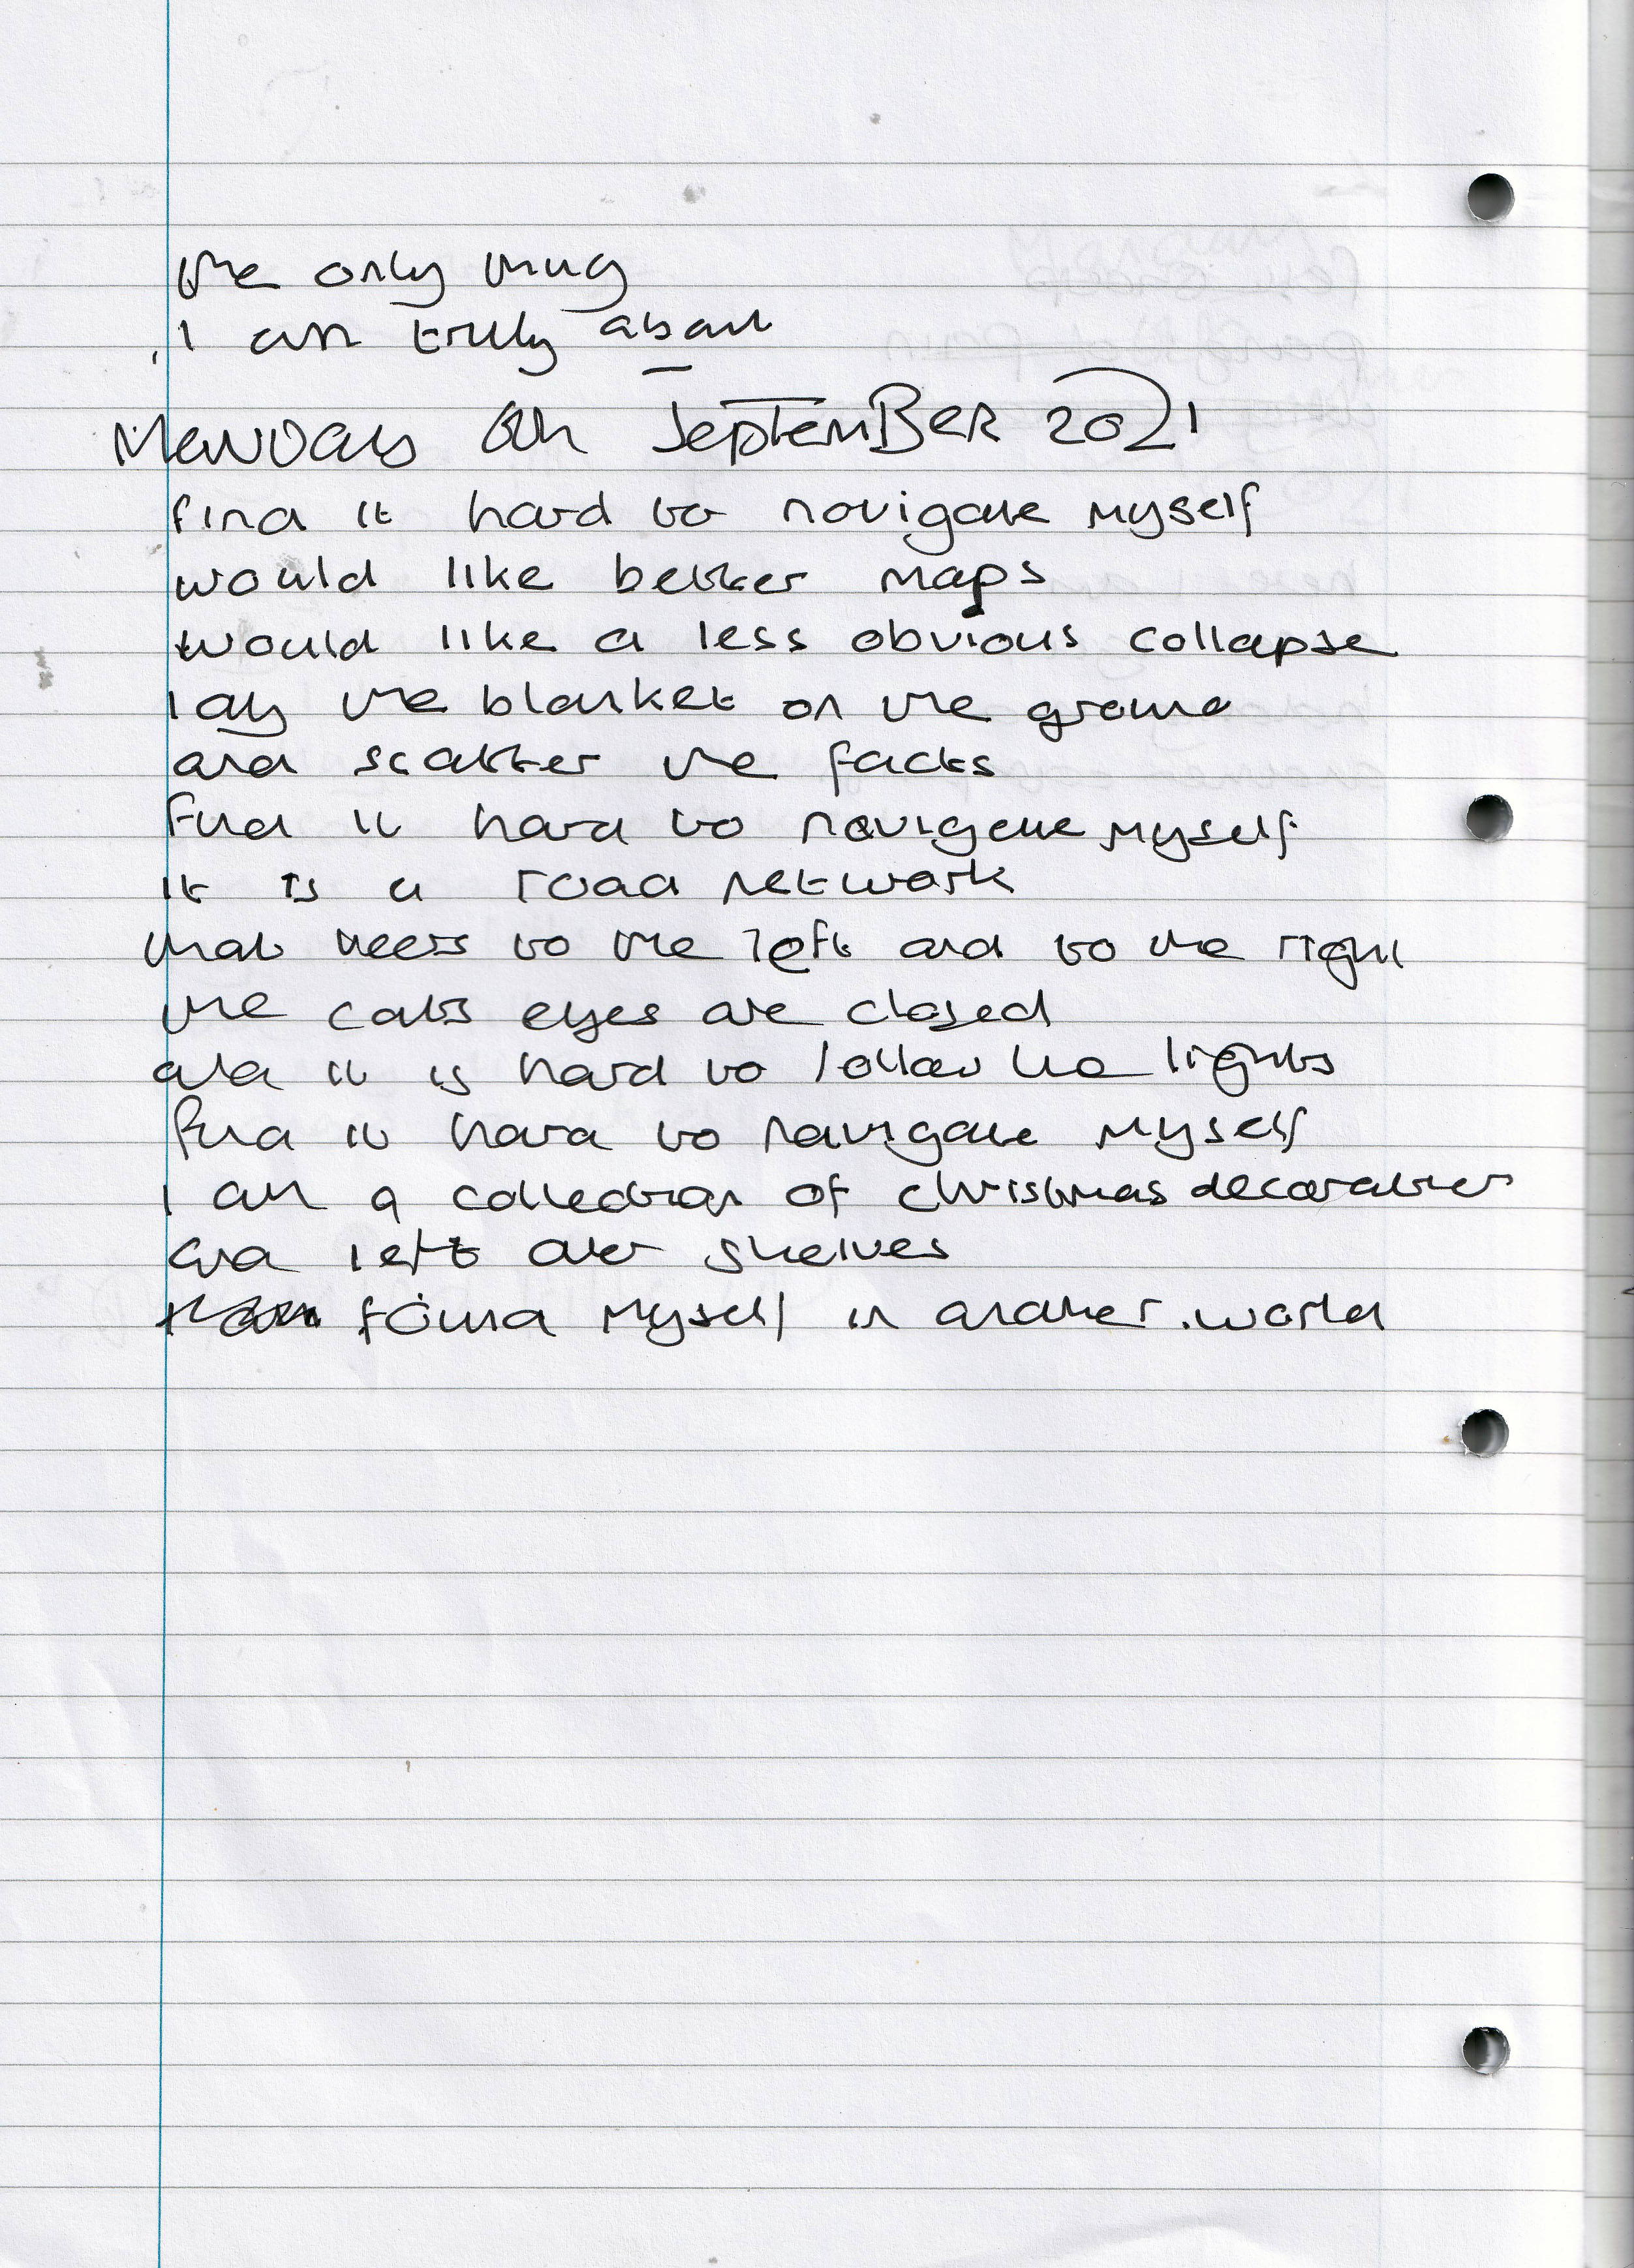 the only thing
I am truly about
Monday 6th September 2021
find it hard to navigate myself
would like better maps
would like a less obvious collapse
lay the blanket on the ground
and scatter the facts
find it hard to navigate myself
it is a road network
that veers to the left and to the right
the cats eyes are closed
and it is hard to follow the lights
find it hard to navigate myself
I am a collection of christmas decorations
and left over shelves
found myself in another world